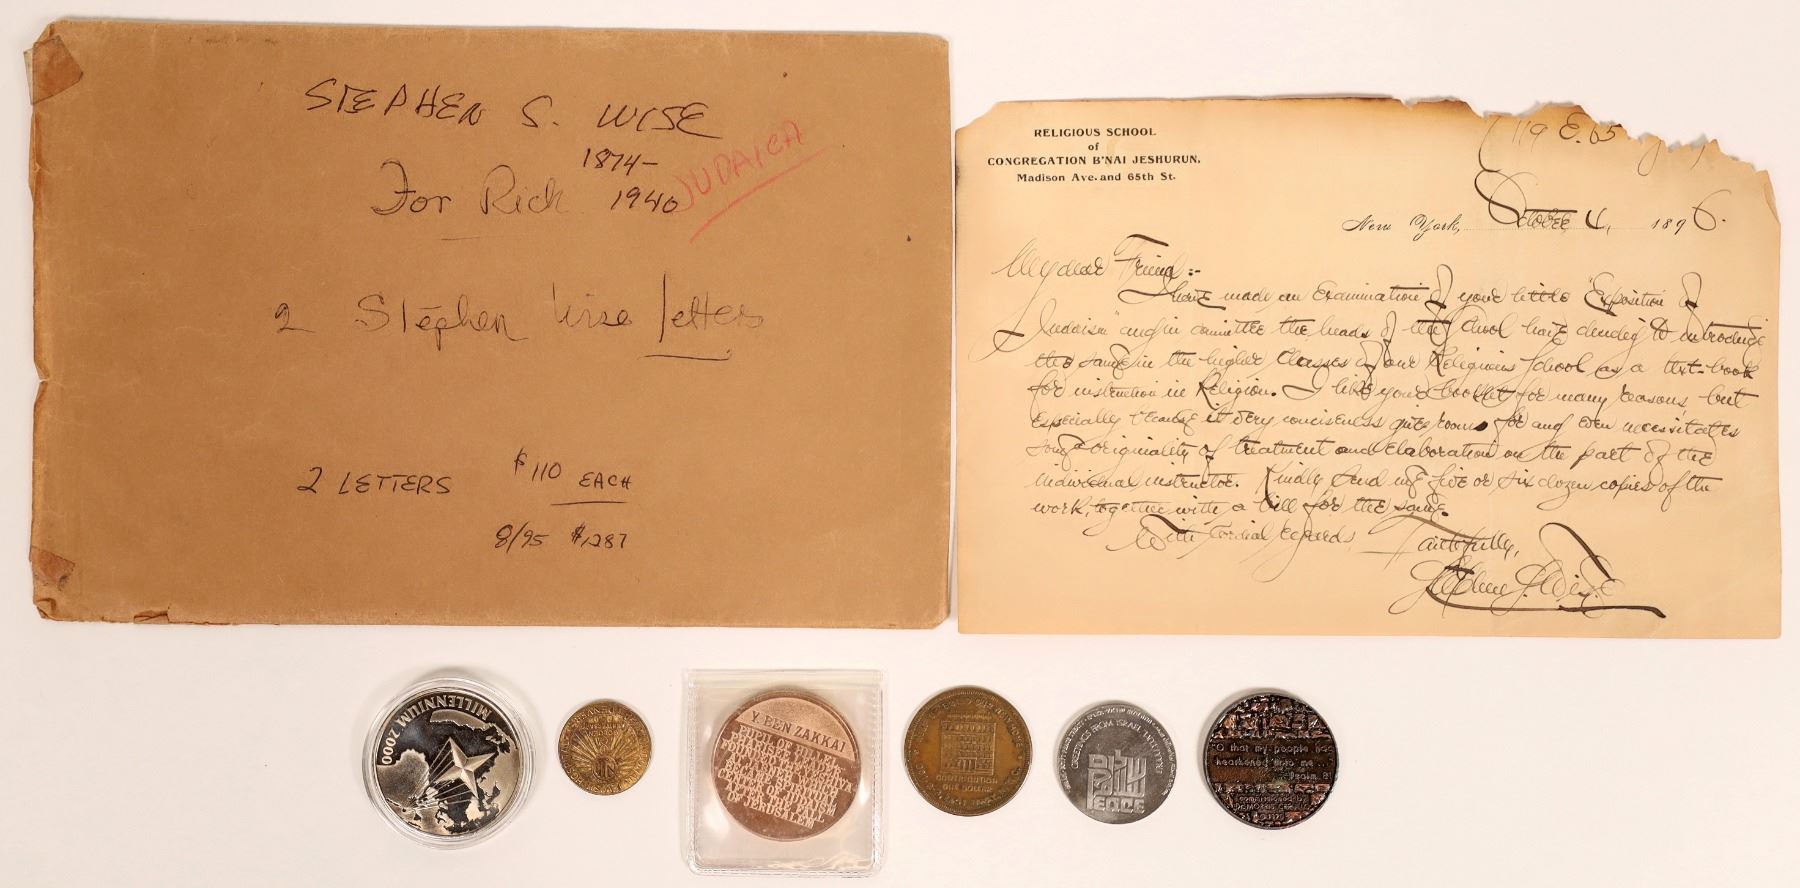 STEPHEN S. WISE
1874-
JUDAICA
For Rich 1940
2 Stephen Wise letters
2 LETTERS $110 EACH
8/95 $1287
119 E. 65
RELIGIOUS SCHOOL
of
CONGREGATION B'NAI JESHURUN,
Madison Ave. and 65th St.
New York, October 4, 1896.
My dear Friend:-
I have made an Examination of your little "Exposition of
Judaism" and in committee the heads of the School have decided to introduce
the same in the higher Classes of our Religious School as a text-book
for instruction in Religion. I like your booklet for many reasons, but
especially because its very conciseness gives room for and even necessitates
some originality of treatment and Elaboration on the part of the
individual instructor. Kindly send me five or six dozen copies of the
work, together with a bill for the same.
With Cordial regards, Faithfully,
Stephen S. Wise
MILLENNIUM
2000
Y. BEN ZAKKAI
PUPIL OF HILLEL
PHARISEE LEADER
CENTER OF JUDAISM
AFTER THE FALL
OF JERUSALEM
CONTRIBUTION
ONE DOLLAR
GREETINGS FROM ISRAEL
שלום
PEACE
"O that my people had
hearkened unto me...
Psalm 81
commissioned by
Dr MORRIS CERULLO